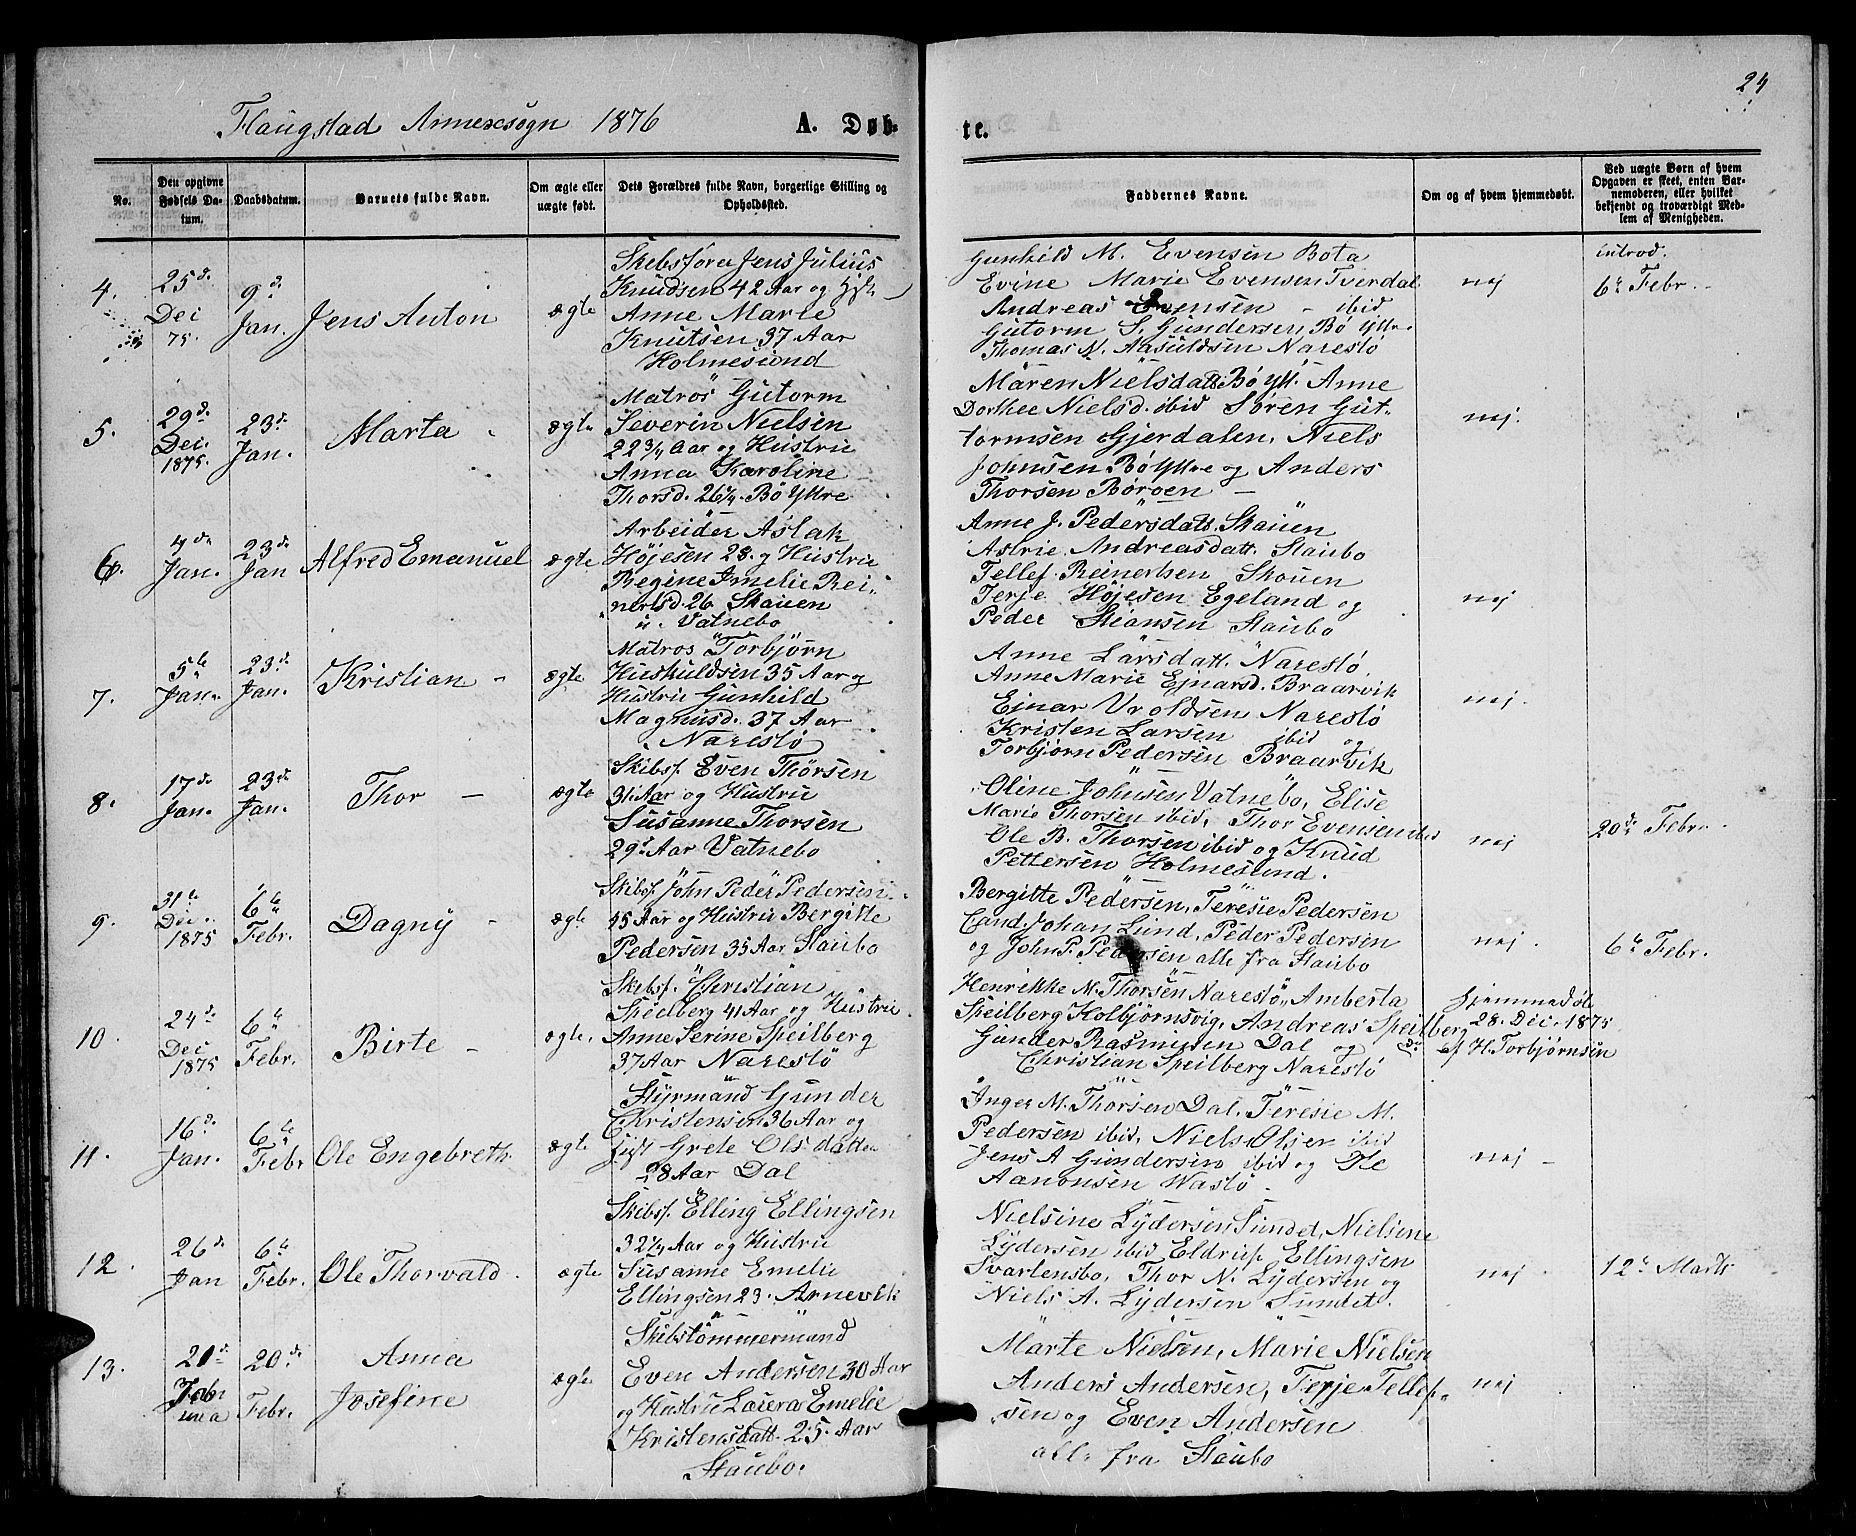 24
Flaugstad Annexsogn 1876
A. Døb-
te.
No.
Den opgivne Fødsels Da-tum.
Daabsdatum.
Barnets fulde Navn.
Om ægte eller uægte født.
Dets Forældres fulde Navn, borgerlige Stilling og Opholdssted.
Faddernes Navne.
Om og af hvem hjemmedøbt.
Ved uægte Børn af hvem Opgaven er skeet, enten Bar-nemoderen, eller hvilket bekjendt og troværdigt Med-lem af Menigheden.
4.
25de Dec 75.
9de Jan.
Jens Anton
ægte
Skibsfører Jens Julius
Knudsen 42 Aar og
Anne Marie
Knutsen 37 Aar
Holmesund
Gunhild M. Evensen Bota
Evine Marie Evensen Tverdal
Andreas Evensen - ibid
Gutorm S. Gundersen, Bø Yttre.
Thomas N. Aasuldsen Narestø
nej
introd.
6te Febr.
5.
29de Dec. 1875.
23de Jan.
Marta
ægte
Matros Gutorm
Severin Nielsen
22 3/4 Aar og Hustru
Anna Karoline
Thorsd. 26 1/4 Bø Yttre
Maren Nielsdatt. Bø Ytt. Anne
Dorthee Nielsd. ibid Søren Gut-
tormsen Gjerdalen, Niels
Johnsen Bø Yttre og Anders
Thorsen Børøen
nej.
6.
4de Jan.
23de Jan
Alfred Emanuel
ægte
Arbeider Aslak
Højesen 28. og Hustru
Regine Amelie Rei-
nertsd. 26 Skauen
u. Vatnebo
Anne J. Pedersdatt. Skauen
Astrie Andreasdatt. Staubo
Tellef Reinertsen Skouen
Terje Højesen Egeland og
Peder Steansen Staubo
nej
7.
5te Jan.
23de Jan.
Kristian
ægte
Matros Torbjørn
Huskuldsen 35 Aar og
Hustru Gunhild
Magnusd. 37 Aar
Narestø
Anne Larsdatt. Narestø
Anne Marie Ejnarsd. Braarvik
Ejnar Uroldsen Narestø
Kristen Larsen ibid og
Torbjørn Pedersen Braarvik
nej.
8.
17de Jan.
23de Jan.
Thor
ægte
Skibsf. Even Thorsen
31. Aar og Hustru
Susanne Thorsen
29 Aar Vatnebo
Oline Johnsen Vatnebo, Elise
Marie Thorsen ibid, Thor Evensen ibid
Ole B. Thorsen ibid og Knud
Pettersen Holmesund.
nej
20de Febr.
9.
31te Dec. 1875
6te Febr.
Dagny
ægte
Skibsf. John Peder Pedersen
45 Aar og Hustru Bergitte
Pedersen 35 Aar Staubo
Bergitte Pedersen, Teresie Pedersen
Cand. Johan Lund, Peder Pedersen
og John P. Pedersen alle fra Staubo
nej.
6te Febr.
10.
24de Dec 1875
6te Febr.
Birte
ægte.
Skibsf. Christian
Speilberg 41 Aar og Hustru
Anne Serine Speilberg
37 Aar Narestø
Henrikke M. Thorsen Narestø, Amberta
Speilberg Kolbjørnsvig, Andreas Speilberg
Gunder Rasmusen Dal og
Christian Speilberg Narestø
hjemmedøbt
28. Dec. 1875
af H. Torbjørnsen
11.
16de Jan.
6te Febr
Ole Engebreth.
ægte
Styrmand Gunder
Christensen 36 Aar og
gift Grete Olsdatter
28 Aar Dal
Inger M. Thorsen Dal, Teresie M.
Pedersen ibid, Niels Olsen ibid
Jens A Gundersen ibid og Ole
Aanonsen Wastø.
nej
12.
26de Jan
6te Febr.
Ole Thorvald
ægte
Skibsf. Elling Ellingsen
32 1/4 Aar og Hustru
Susanne Emelie
Ellingsen 23. Arnevik
Nielsine Lydersen Sundet, Nielsine
Lydersen ibid Eldrup Ellingsen
Svartensbo, Thor N. Lydersen og
Niels A. Lydersen Sundet.
nej
12te Marts
13.
20de Februa
20de Febr.
Anna Josefine
ægte
Skibstømmermand
Even Andersen 30 Aar
og Hustru Laura Emelie
Kristensdatt. 25. Aar
Staubo.
Marte Nielsen, Marie Nielsen
Anders Andersen, Terje Tellef-
sen og Even Andersen
alle fra Staubo
nej